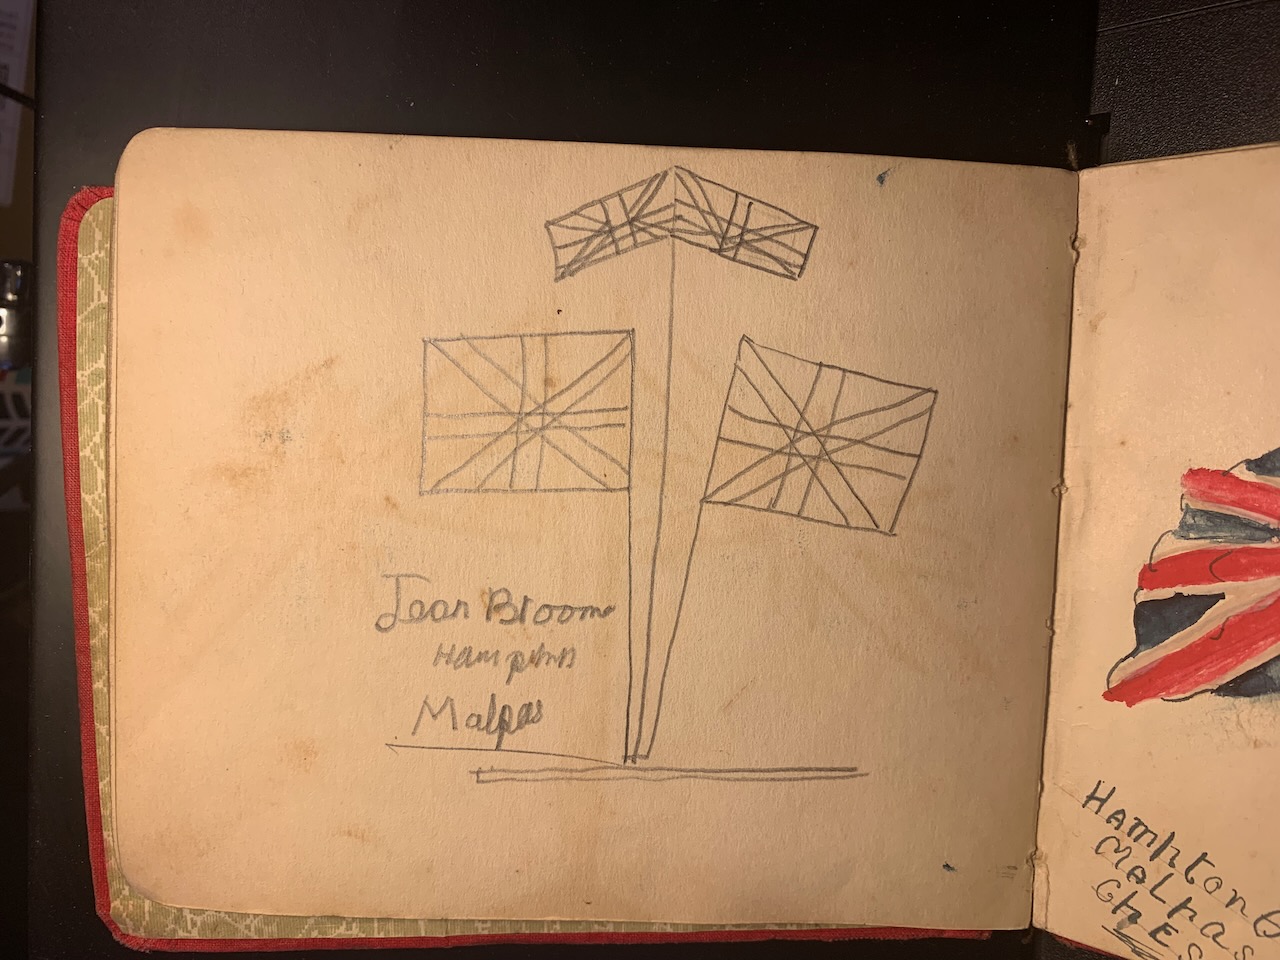 Jean Broom
Hampton
Malpas
Hampton
Malpas
Ches